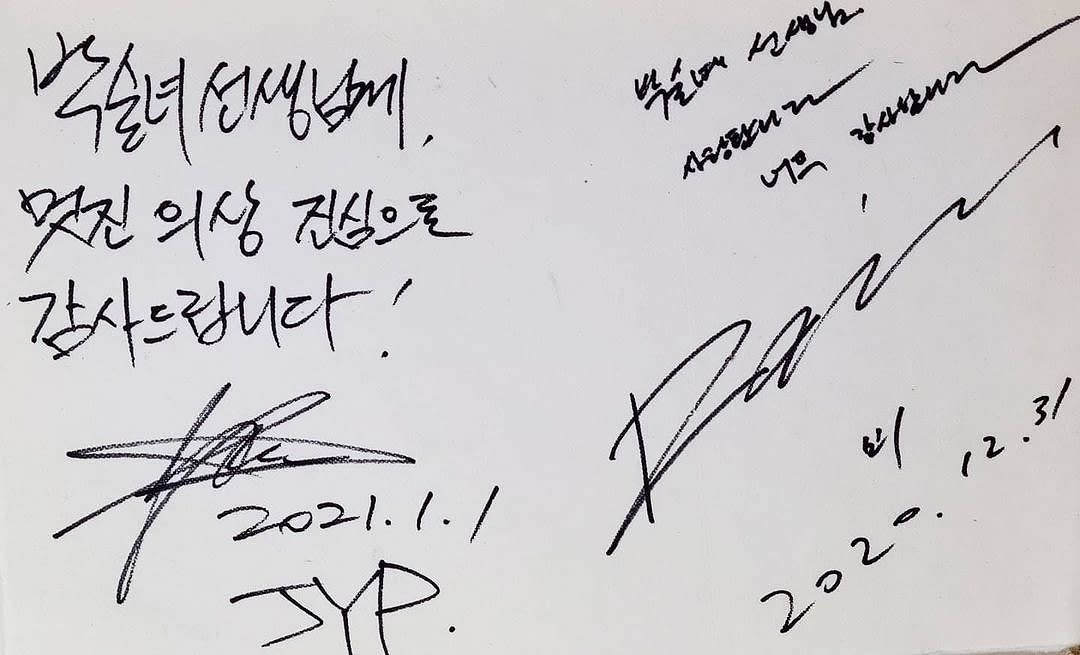 박술녀 선생님께,
멋진 의상 진심으로
감사드립니다!
2021.1.1
JYP.
박술녀 선생님
사랑합니다
너무 감사합니다
Rain
비
2020.12.31